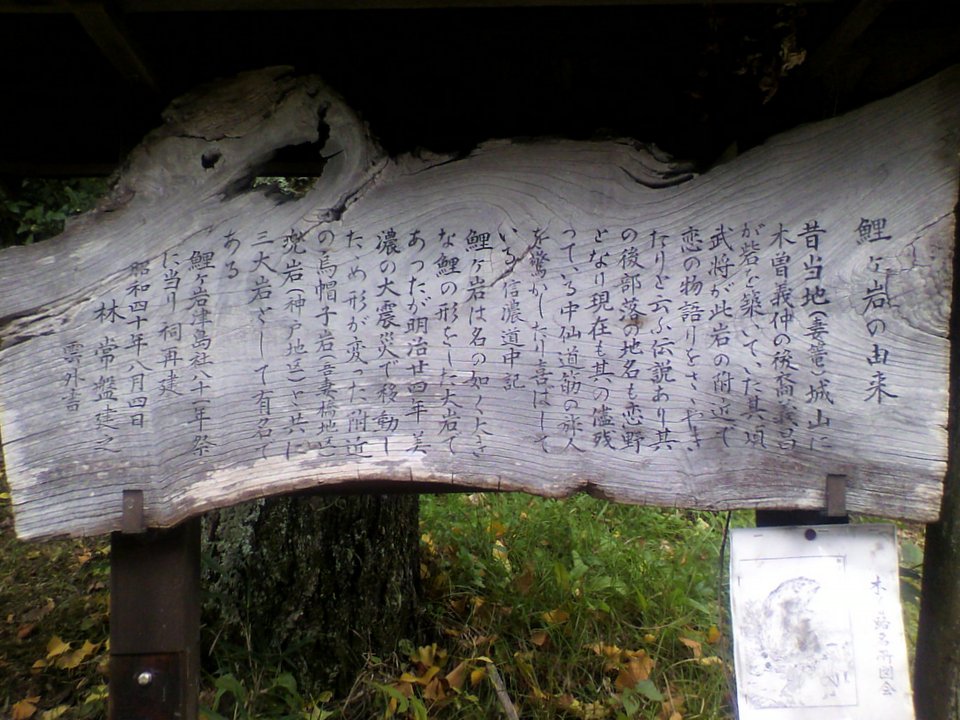 鯉ヶ岩の由来
昔当地(妻籠)城山に
木曽義仲の後裔義昌
が砦を築いていた其頃
武将が此岩の附近で
恋の物語りをさゝやき
たりと云ふ伝説あり其
の後部落の地名も恋野
となり現在も其の儘残
っている中仙道筋の旅人
を驚かしたり喜ばして
いる 信濃道中記
鯉ヶ岩は名の如く大き
な鯉の形をした大岩で
あったが明治廿四年美
濃の大震災で移動し
たゝめ形が変った附近
の烏帽子岩(吾妻橋地区)
兜岩(神戸地区)と共に
三大岩として有名で
ある
鯉ヶ岩津島社八十一年祭
に当り祠再建
昭和四十年八月四日
林 常盤建之
雲外書
木曽路名所図会